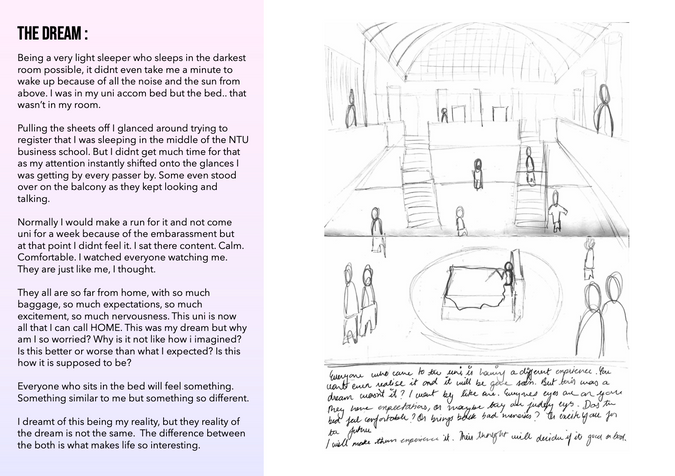 THE DREAM :
Being a very light sleeper who sleeps in the darkest
room possible, it didnt even take me a minute to
wake up because of all the noise and the sun from
above. I was in my uni accom bed but the bed.. that
wasn't in my room.
Pulling the sheets off I glanced around trying to
register that I was sleeping in the middle of the NTU
business school. But I didnt get much time for that
as my attention instantly shifted onto the glances I
was getting by every passer by. Some even stood
over on the balcony as they kept looking and
talking.
Normally I would make a run for it and not come
uni for a week because of the embarassment but
at that point I didnt feel it. I sat there content. Calm.
Comfortable. I watched everyone watching me.
They are just like me, I thought.
They all are so far from home, with so much
baggage, so much expectations, so much
excitement, so much nervousness. This uni is now
all that I can call HOME. This was my dream but why
am I so worried? Why is it not like how i imagined?
Is this better or worse than what I expected? Is this
how it is supposed to be?
Everyone who sits in the bed will feel something.
Something similar to me but something so different.
I dreamt of this being my reality, but they reality of
the dream is not the same.  The difference between
the both is what makes life so interesting.
Everyone who came to the uni is having a different experience. You
wont even realise it and it will be gone soon. But this was a
dream wasnt it? I wont by like this. Everyones eyes are on you
They have expectations, or maybe say all judgy eyes. Does the
bed feel comfortable? Or brings back bad memories? Or excite you for
the future
I will make them experience it. Their thought will decide if its good or bad.